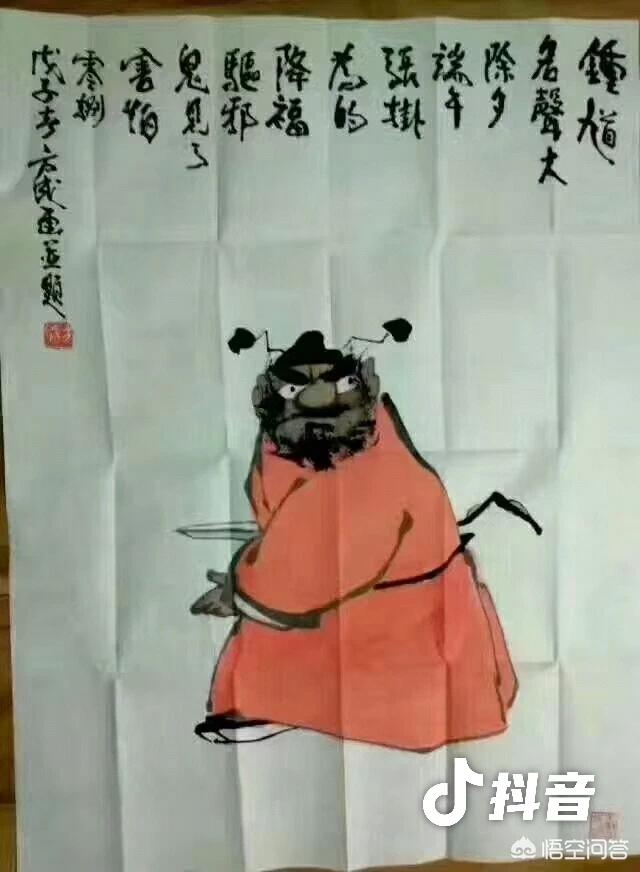 鍾馗
名聲大
除夕
端午
張掛
為的
降福
驅邪
鬼見了
害怕
零捌
戊子春方成画並題
抖音
悟空问答